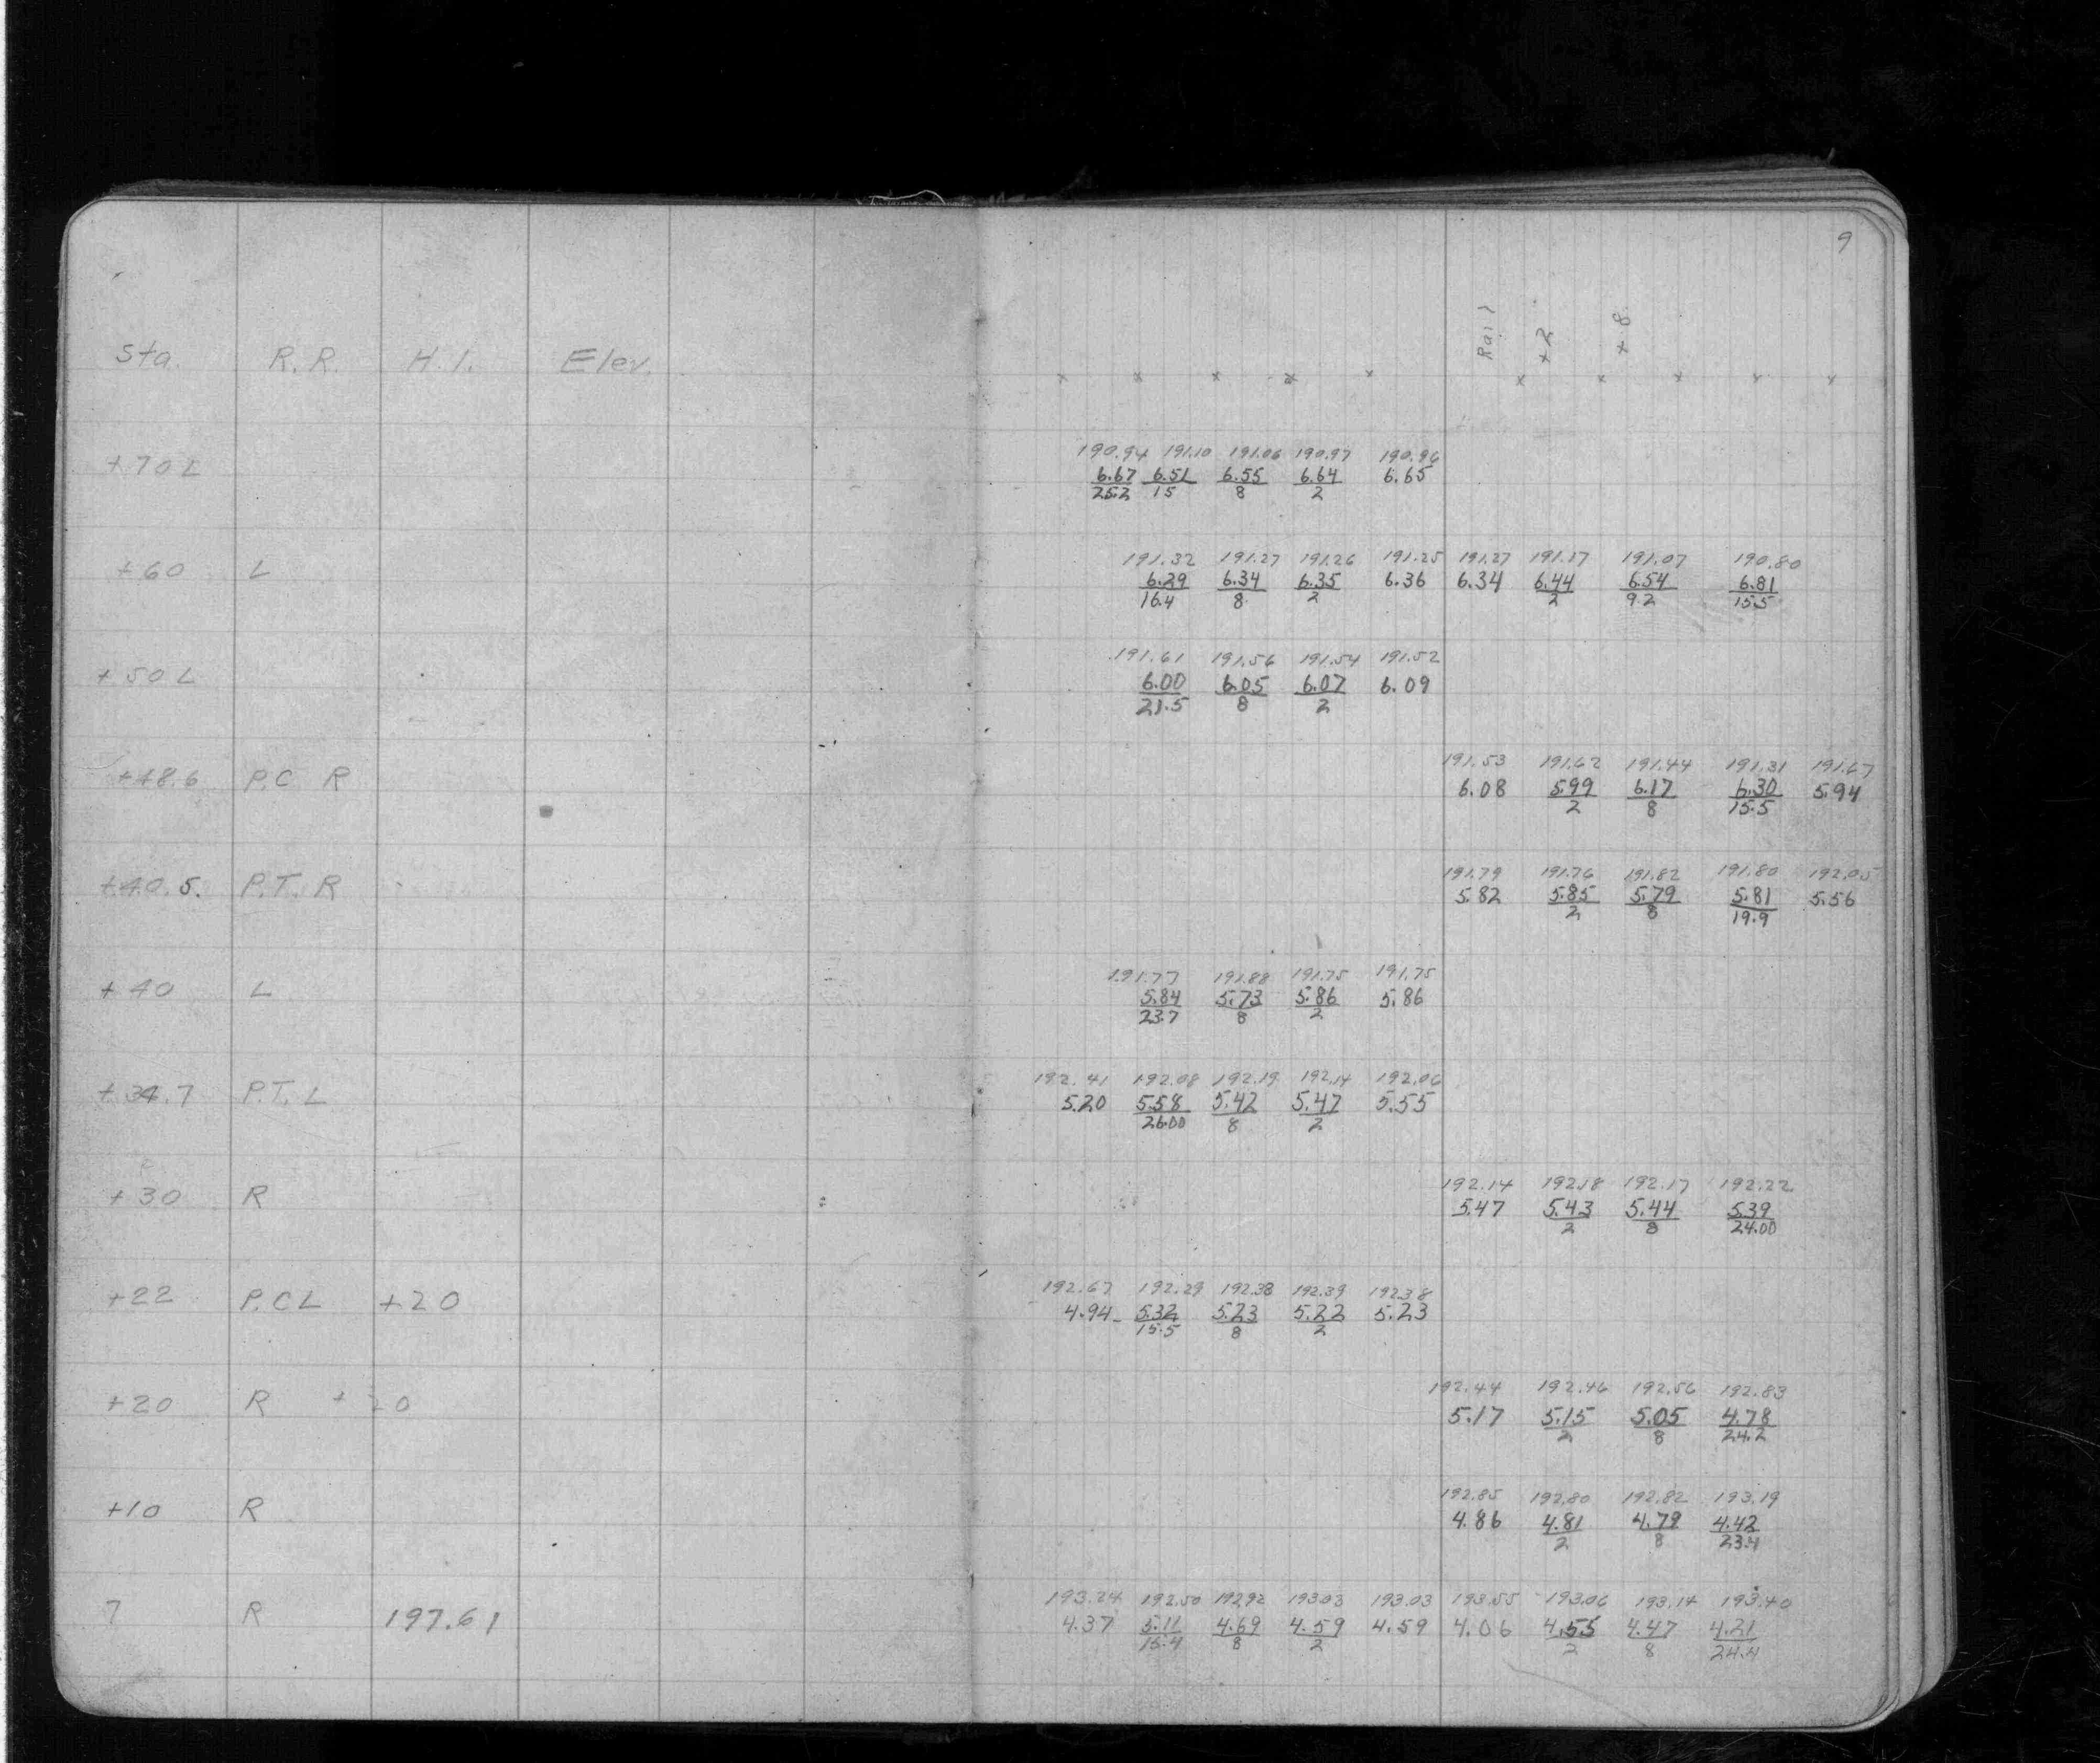 9
Rail +2 +8
Sta. R.R. H.I. Elev.
x x x x x x x x x x
190.94 191.10 191.06 190.97 190.96
+70 L 6.67 6.51 6.55 6.64 6.65
25.2 15 8 2
191.32 191.27 191.26 191.25 191.27 191.17 191.07 190.80
+60 L 6.29 6.34 6.35 6.36 6.34 6.44 6.54 6.81
16.4 8 2 2 9.2 15.5
191.61 191.56 191.54 191.52
+50 L 6.00 6.05 6.07 6.09
21.5 8 2
191.53 191.62 191.44 191.31 191.67
+48.6 P.C R 6.08 5.99 6.17 6.30 5.94
2 8 15.5
191.79 191.76 191.82 191.80 192.05
+40.5. P.T. R 5.82 5.85 5.79 5.81 5.56
2 8 19.9
191.77 191.88 191.75 191.75
+40 L 5.84 5.73 5.86 5.86
23.7 8 2
192.41 192.08 192.19 192.14 192.06
+34.7 P.T. L 5.20 5.58 5.42 5.47 5.55
26.00 8 2
192.14 192.18 192.17 192.22
+30 R 5.47 5.43 5.44 5.39
2 8 24.00
192.67 192.29 192.38 192.39 192.38
+22 P.C L +20 4.94 5.32 5.23 5.22 5.23
15.5 8 2
192.44 192.46 192.56 192.83
+20 R +20 5.17 5.15 5.05 4.78
2 8 24.2
192.85 192.80 192.82 193.19
+10 R 4.86 4.81 4.79 4.42
2 8 23.4
193.24 192.50 192.92 193.03 193.03 193.55 193.06 193.14 193.40
7 R 197.61 4.37 5.11 4.69 4.59 4.59 4.06 4.55 4.47 4.21
15.4 8 2 2 8 24.4